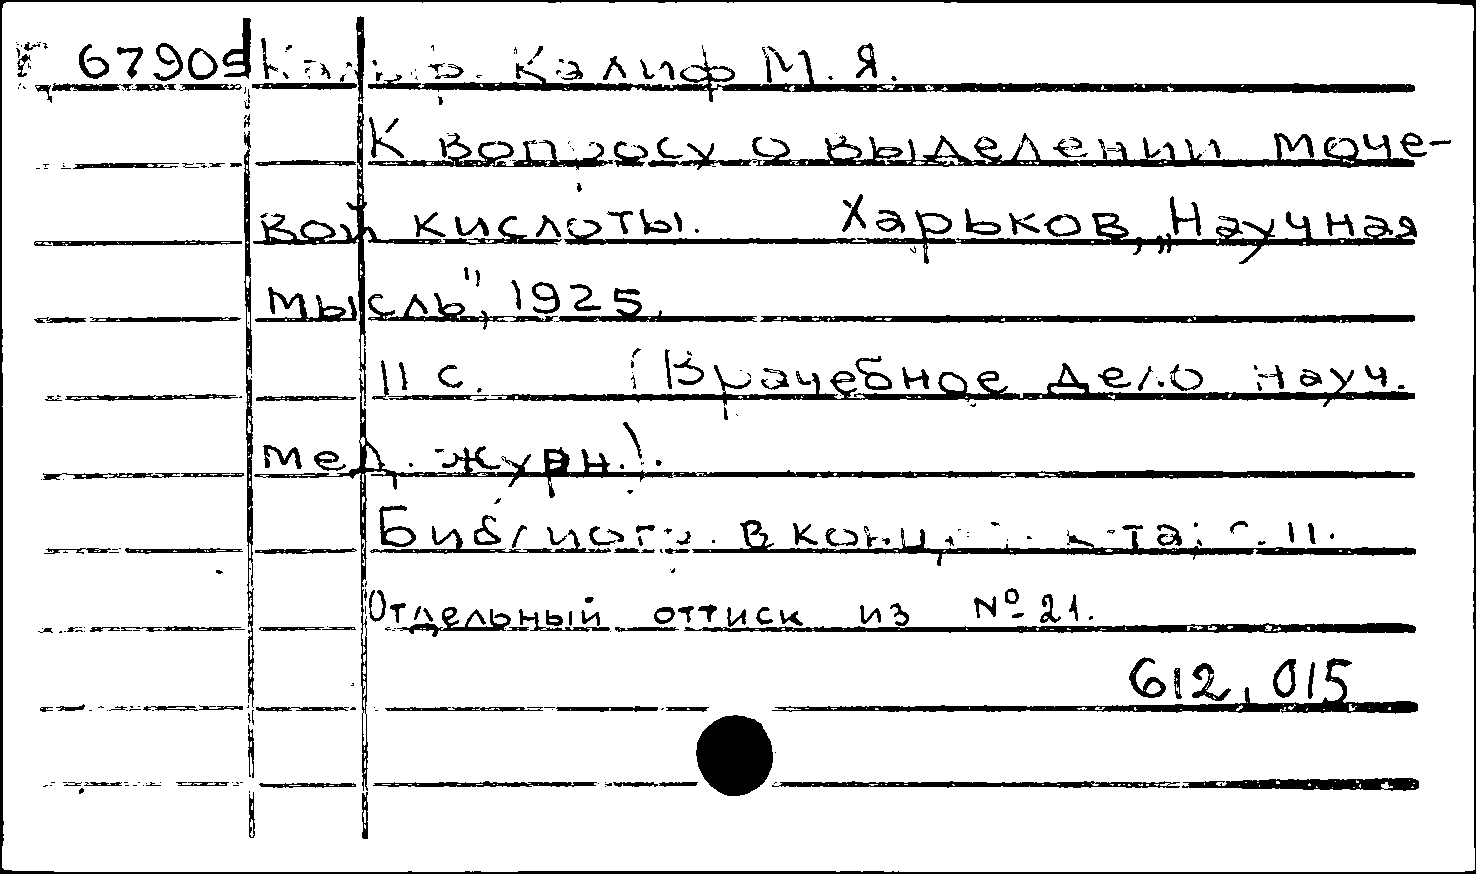 67909 Калиф М. Я.
К вопросу о выделении моче-
вой кислоты. Харьков, „Научная
мысль", 1925.
11 с. (Врачебное дело науч.
мед. журн.).
Библиогр. в конце с. 11.
Отдельный оттиск из № 21.
612,015